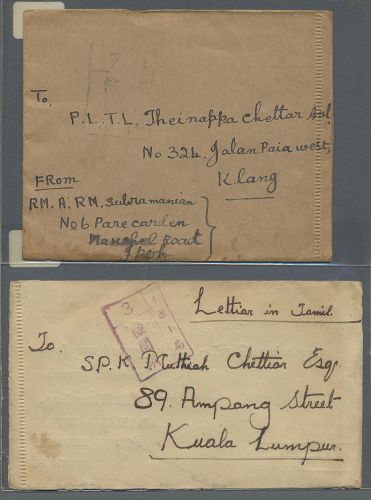 To,
P.L.T.L. Theinappa Chettar Avl
No 324, Jalan Paia west,
Klang
FRom
RM. A. RM. Subramanian
No 6 Pare carden
Road
Ipoh
3
Lettiar in Tamil.
To.
S.P.K. Muthiah Chettiar Esq.
89. Ampang Street
Kuala Lumpur.